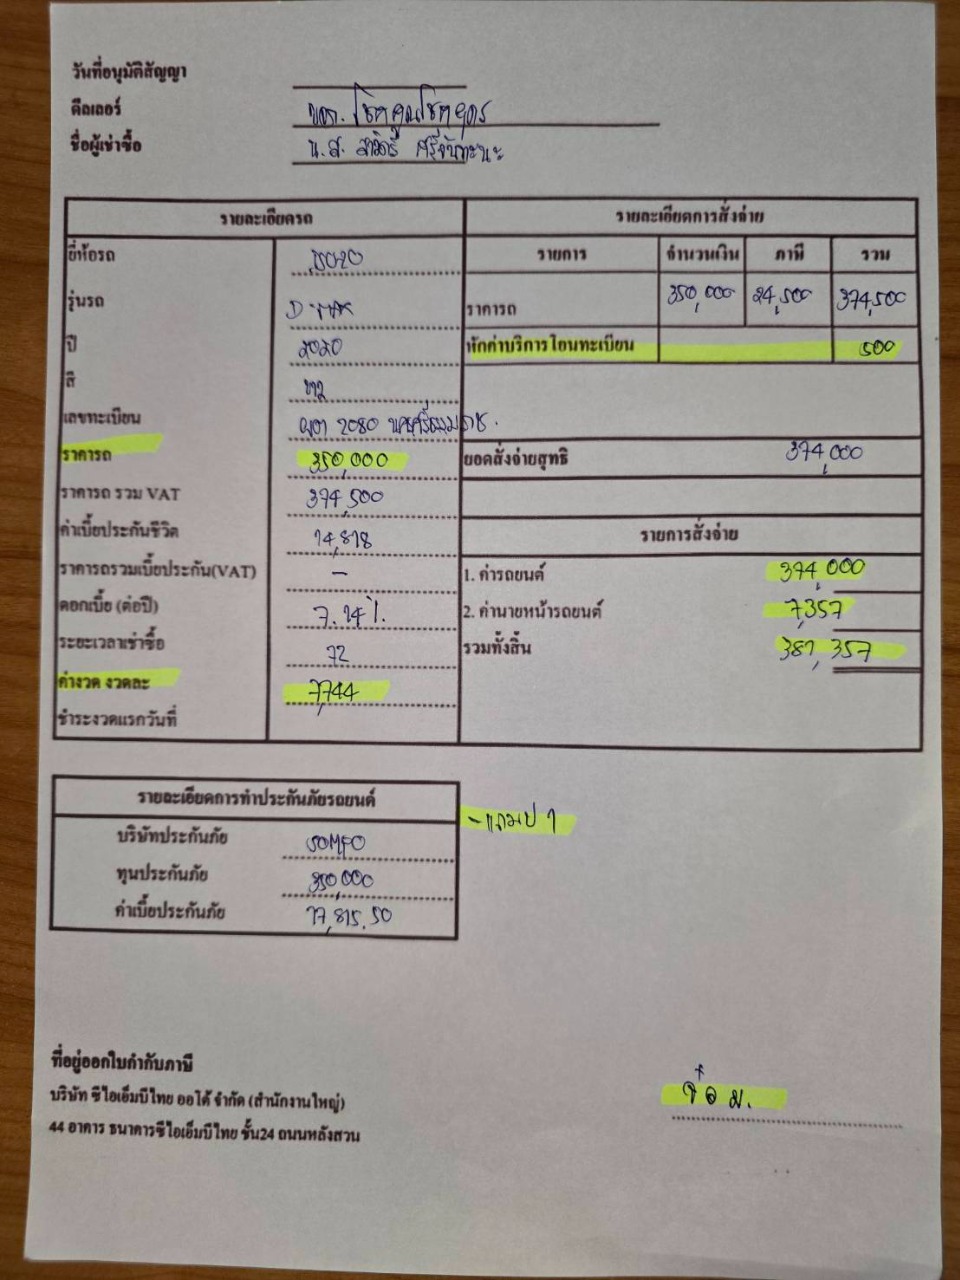 วันที่อนุมัติสัญญา
ดีลเลอร์ หจก. โชคคูณโชค
ชื่อผู้เช่าซื้อ น.ส.
รายละเอียดรถ
ยี่ห้อรถ
รุ่นรถ D-max
ปี 2020
สี ขาว
เลขทะเบียน 2080 นครศรีธรรมราช.
ราคารถ 350,000
ราคารถ รวม VAT 374,500
ค่าเบี้ยประกันชีวิต 14,818
ราคารถรวมเบี้ยประกัน(VAT) –
ดอกเบี้ย (ต่อปี) 7.14%
ระยะเวลาเช่าซื้อ 72
ค่างวด งวดละ 7,744
ชำระงวดแรกวันที่
รายละเอียดการสั่งจ่าย
รายการ จำนวนเงิน ภาษี รวม
ราคารถ 350,000 24,500 374,500
หักค่าบริการโอนทะเบียน 500
ยอดสั่งจ่ายสุทธิ 374,000
รายการสั่งจ่าย
1. ค่ารถยนต์ 374,000
2. ค่านายหน้ารถยนต์ 7,357
รวมทั้งสิ้น 381,357
รายละเอียดการทำประกันภัยรถยนต์
บริษัทประกันภัย SOMPO
ทุนประกันภัย 350,000
ค่าเบี้ยประกันภัย 17,815.50
- แถมป 1
ที่อยู่ออกใบกำกับภาษี
บริษัท ซีไอเอ็มบีไทย ออโต้ จำกัด (สำนักงานใหญ่)
44 อาคาร ธนาคารซีไอเอ็มบีไทย ชั้น24 ถนนหลังสวน